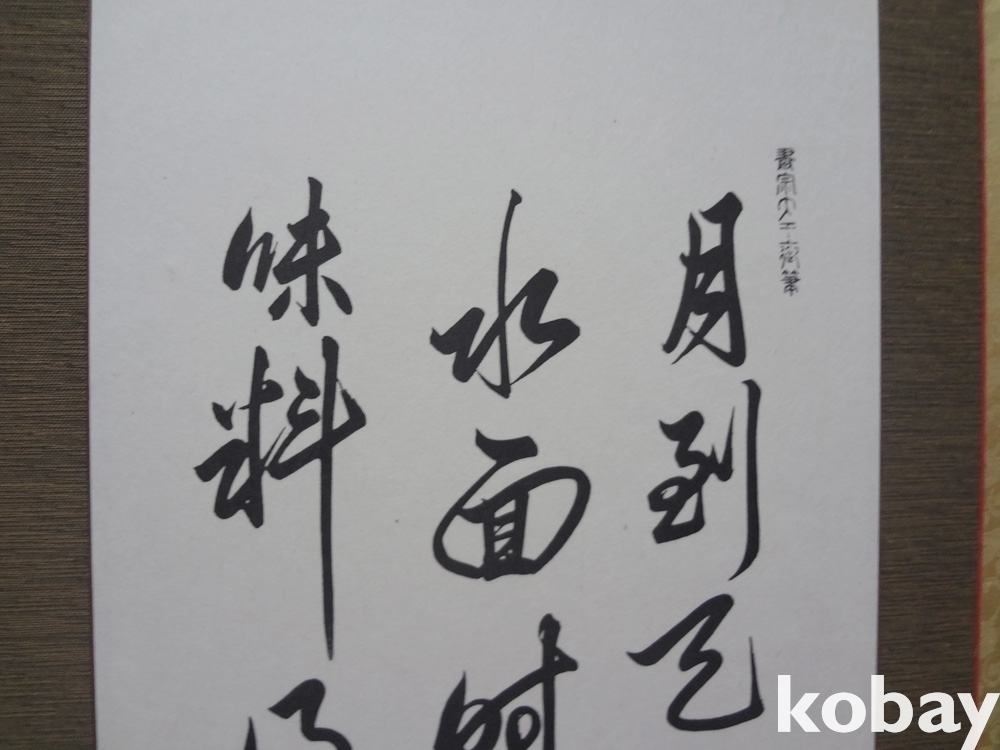 月到天
水面時
味料得
kobay